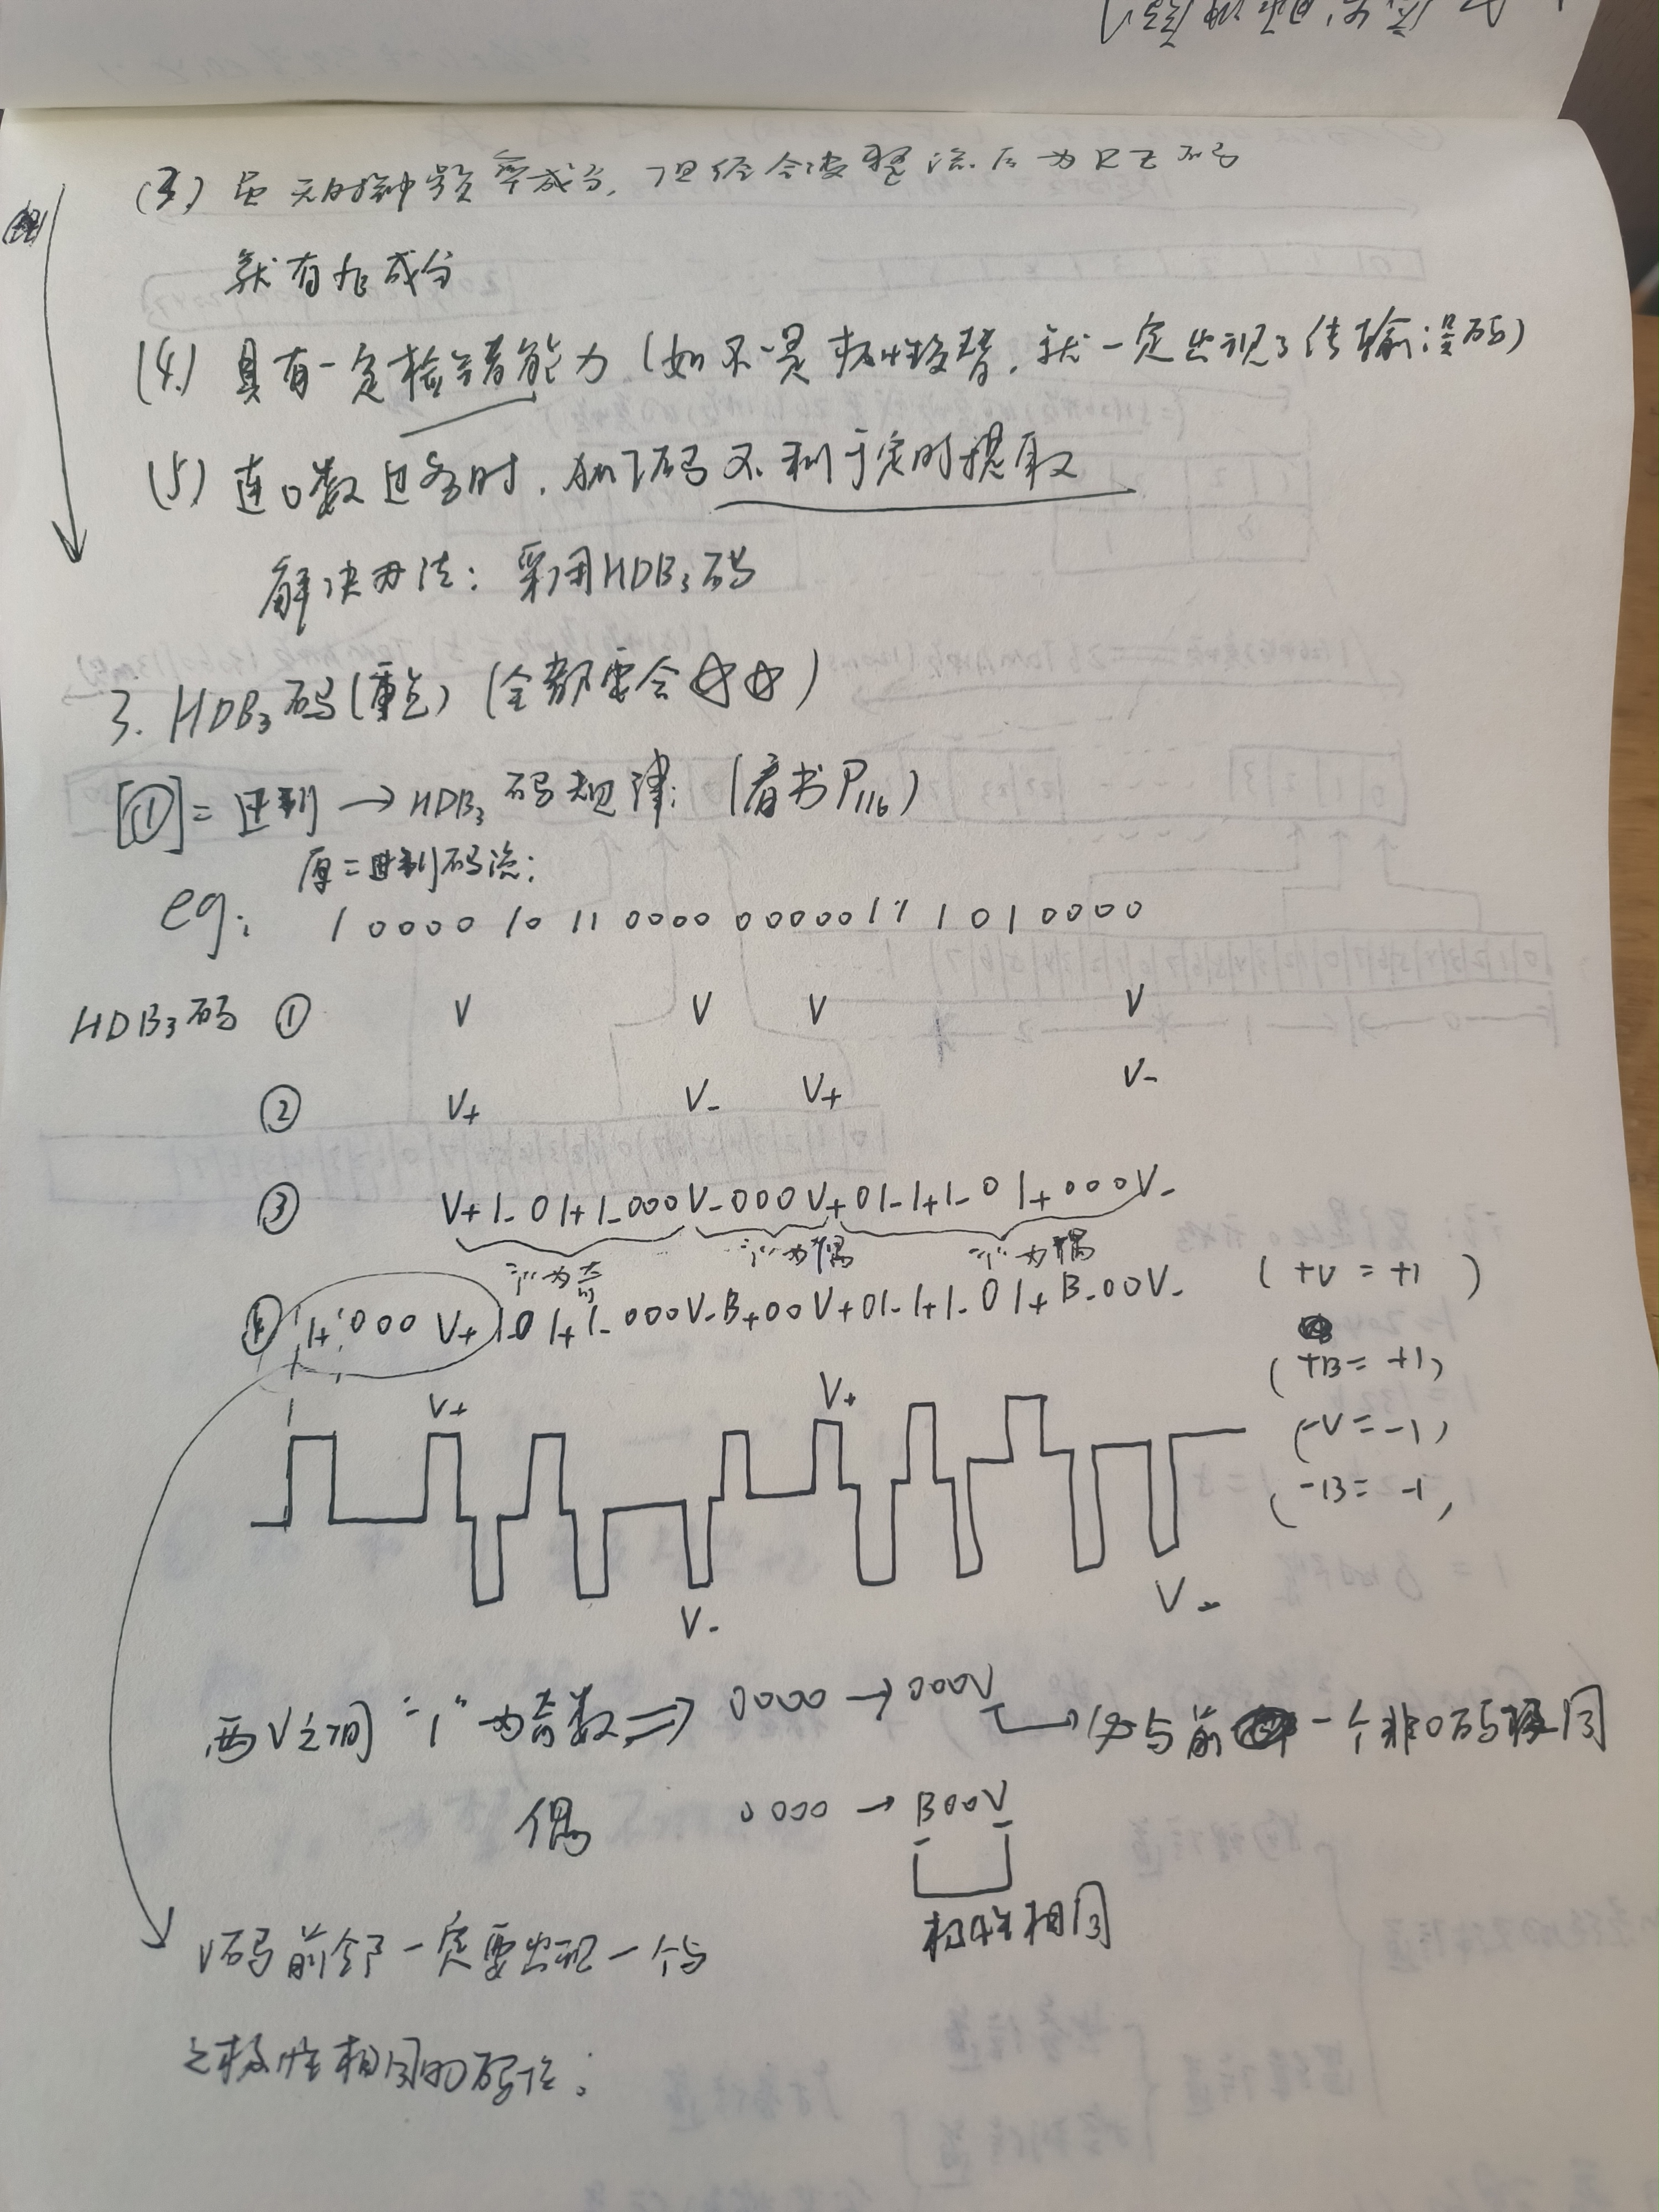 (3) 虽无时钟频率成分,但经全波整流后为RZ码
就有f_b成分
(4) 具有一定检错能力(如不是极性交替,就一定出现了传输误码)
(5) 连0数过多时,AMI码不利于定时提取
解决办法:采用HDB₃码
3. HDB₃码(重点)(全部要会☆☆)
[①]二进制→HDB₃码规律:(看书P₁₁₆)
原二进制码流:
eg: 1 0000 10 11 0000 00000 11 1 0 1 0000
HDB₃码 ① V V V V
② V+ V- V+ V-
③ V+ 1- 0 1+ 1- 000V- 000V+ 01- 1+ 1- 0 1+ 000V-
"1"为奇 "1"为偶 "1"为偶
④ 1+ 000 V+ 1- 0 1+ 1- 000V- B+00V+ 01- 1+ 1- 0 1+ B-00V- (+V = +1)
(+B = +1)
V+ V+ (-V = -1)
(-B = -1)
V- V-
两V之间"1"为奇数⇒ 0000→000V →必与前一个非0码极同
偶 0000→B00V
极性相同
V码前邻一定要出现一个与
之极性相同的码位;